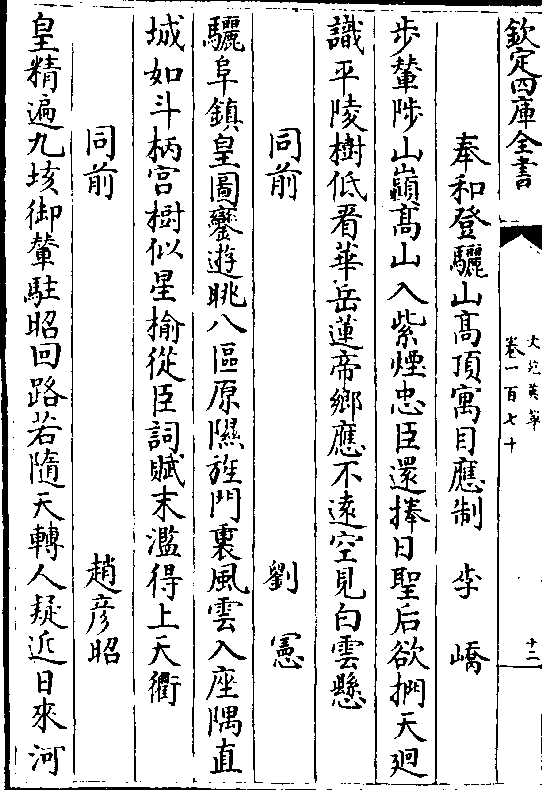 欽定四庫全書
文苑英華
卷一百七十
十二
奉和登驪山髙頂寓目應制 李嶠
步輦陟山巔髙山入紫煙忠臣還捧日聖后欲捫天廻
識平陵樹低看華岳蓮帝鄉應不遠空見白雲懸
同前 劉憲
驪阜鎮皇圖鑾遊眺八區原隰旌門裏風雲入座隅直
城如斗柄宫樹似星榆從臣詞賦末濫得上天衢
同前 趙彦昭
皇精遍九垓御輦駐昭回路若隨天轉人疑近日來河